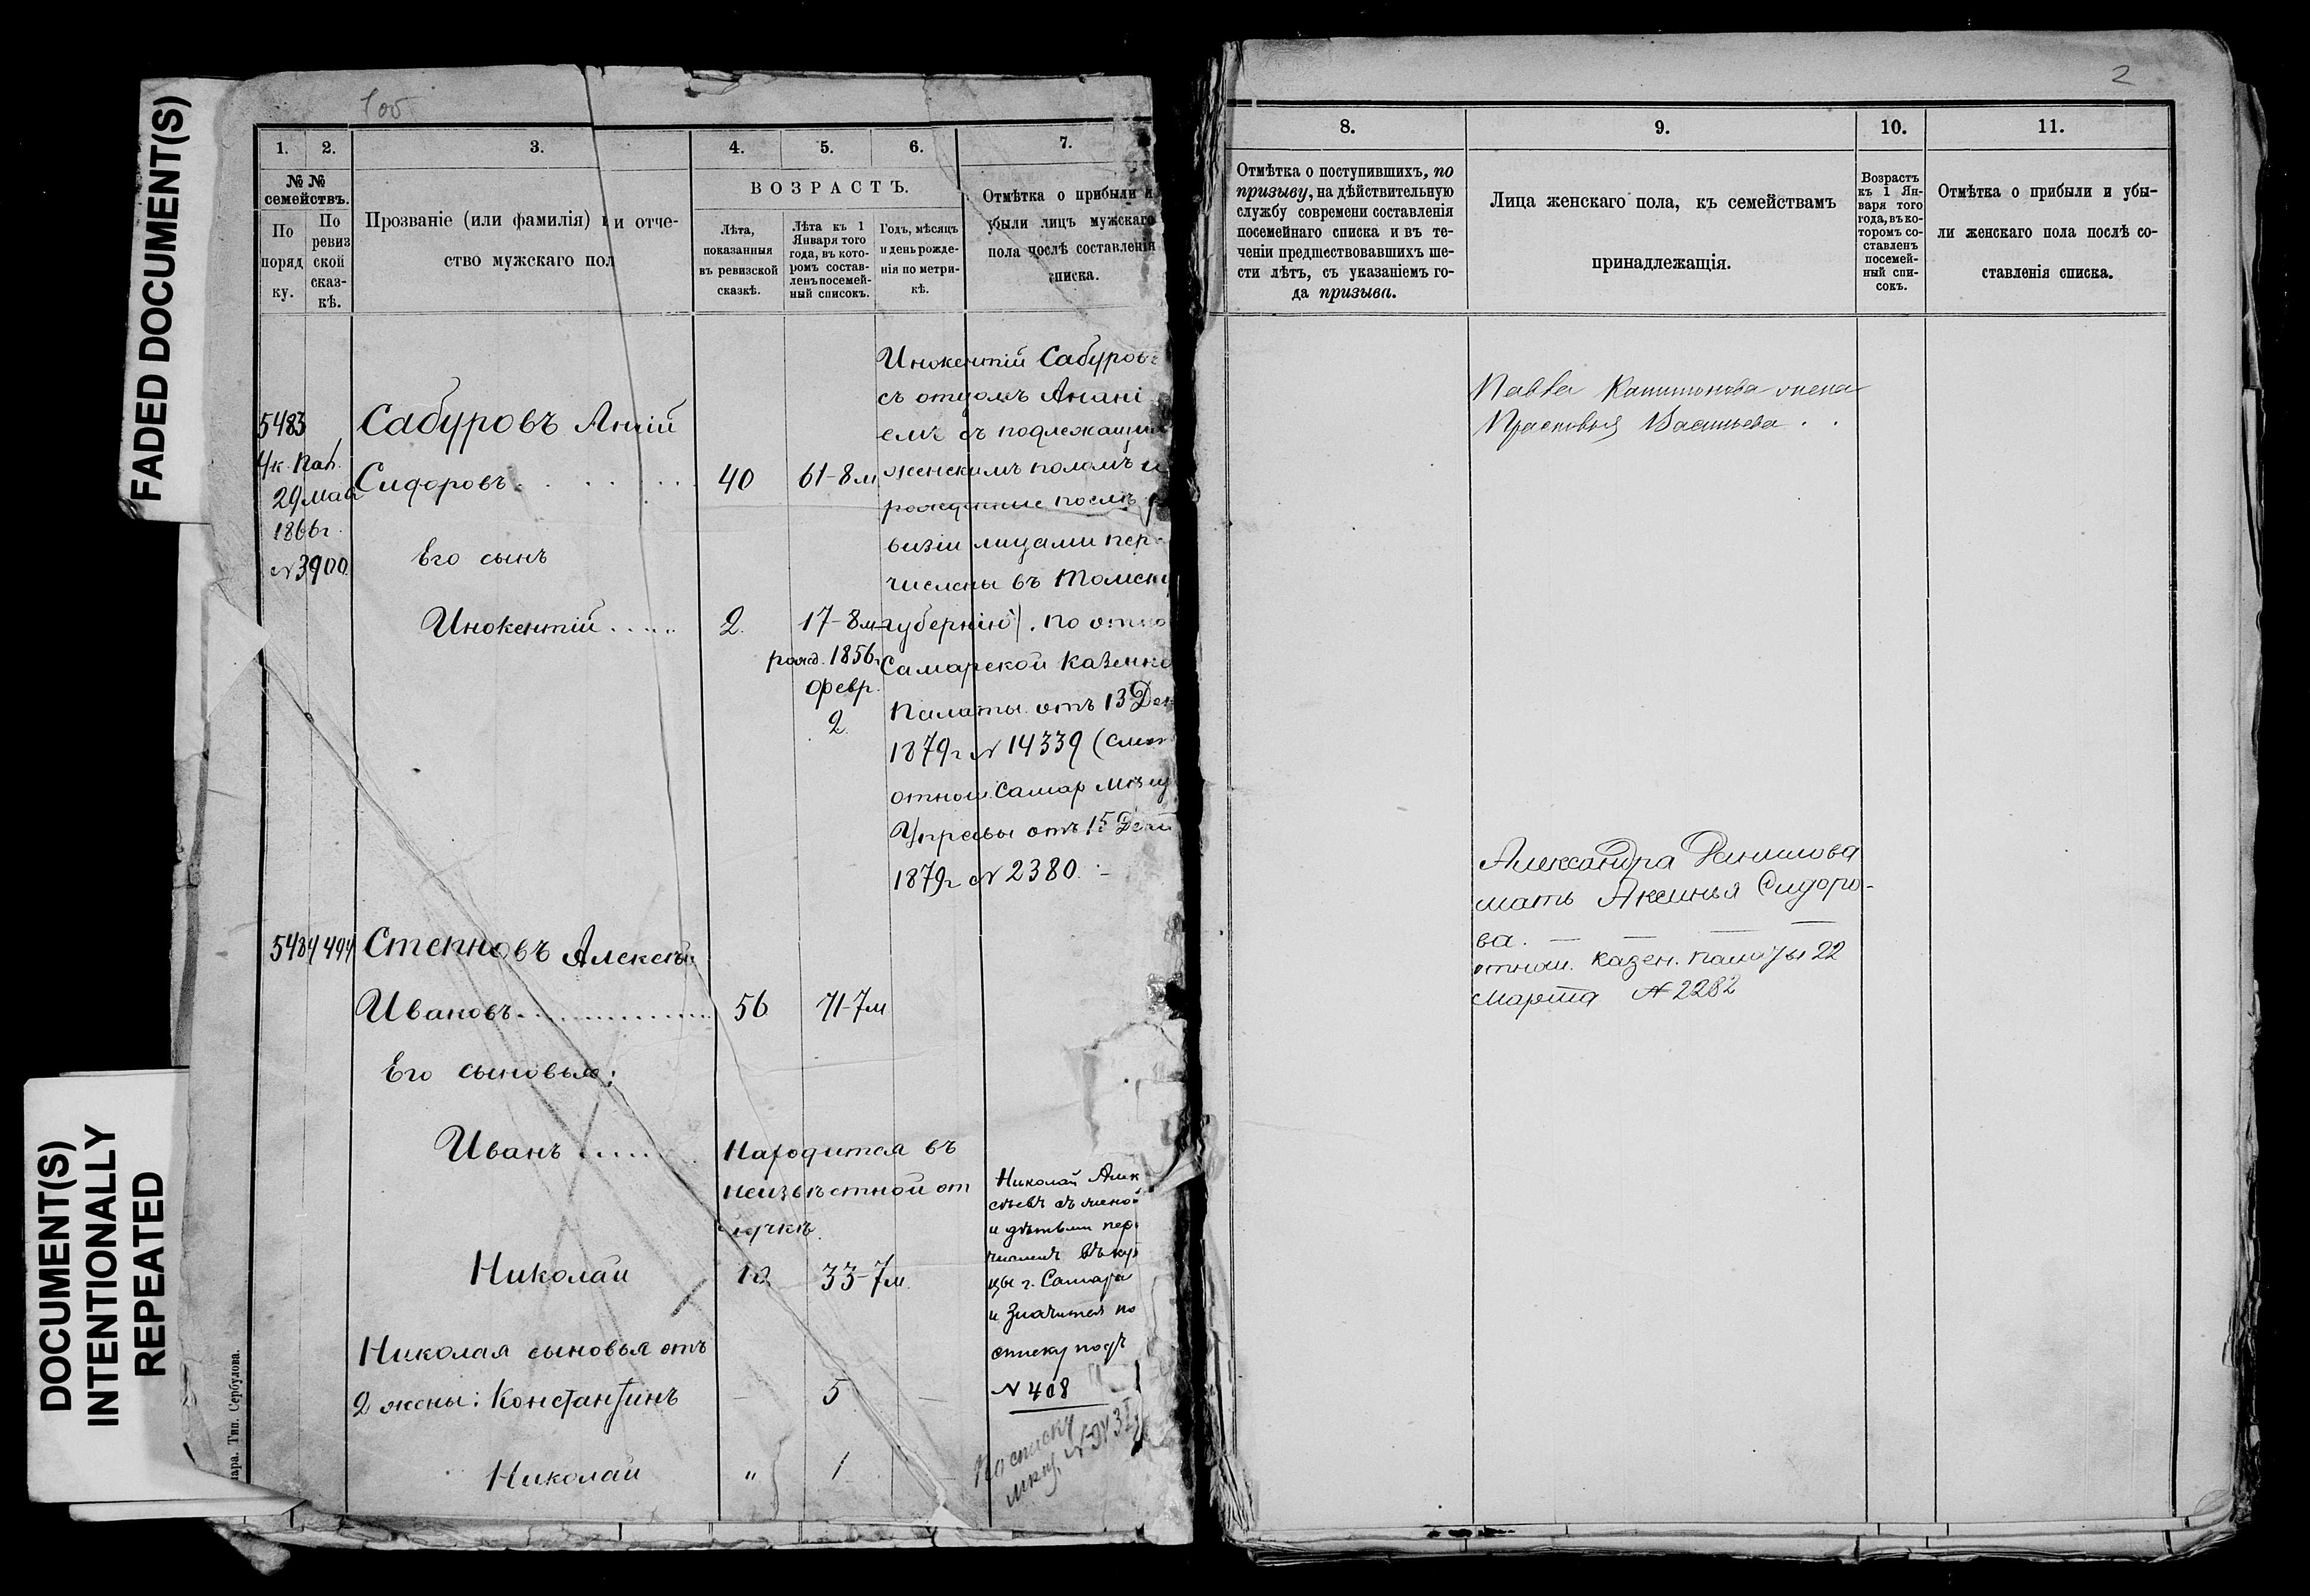 FADED DOCUMENT(S)
DOCUMENT(S)
INTENTIONALLY
REPEATED
1. 2. 3. 4. 5. 6. 7.
№ №
семействъ.
По
поряд
ку.
По
ревиз
ской
сказ-
кѣ.
Прозваніе (или фамилія) и отче-
ство мужскаго пол
ВОЗРАСТЪ.
Лѣта,
показанныя
въ ревизской
сказкѣ.
Лѣта къ 1
Января того
года, въ кото-
ромъ состав-
ленъ посемей-
ный списокъ.
Годъ, мѣсяцъ
и день рожде-
нія по метри-
кѣ.
Отмѣтка о прибыли и
убыли лицъ мужскаго
пола послѣ составленія
списка.
5483
Ук. Пал.
29 мая
1866 г.
№ 3900
Сабуровъ
Сидоровъ 40 61-8м
Его сынъ
Инокентій 2. 17-8м
рожд. 1856 г
Февр.
2
Инокентій Сабуровъ
съ отцомъ Анані
емъ съ подлежащим
женскимъ поломъ и
рожденные послѣ р
визіи лицами пер
числены въ Томск
губернію. по отно
Самарской Казенно
Палаты отъ 13 Дек
1879 г № 14339 (смот
отнош. Самар Мѣщ
Управы отъ 15 Дек
1879 г № 2380.
5484 494 Степновъ Алексѣй
Ивановъ 56 71-7м
Его сыновья:
Иванъ Находится въ
неизвѣстной от
лучкѣ.
Николай 18 33-7м.
Николая сыновья отъ
2 жены: Константинъ - 5 -
Николай " 1
Николай Алек
сѣевъ съ женой
и дѣтьми пер
численъ въ куп
цы г. Самара
и значится по
списку подъ
№ 408
По списку
Тип. Сербулова.
2
8. 9. 10. 11.
Отмѣтка о поступившихъ, по
призыву, на дѣйствительную
службу современи составленія
посемейнаго списка и въ те-
ченіи предшествовавшихъ ше-
сти лѣтъ, съ указаніемъ го-
да призыва.
Лица женскаго пола, къ семействамъ
принадлежащія.
Возрастъ
къ 1 Ян-
варя того
года, въ ко-
торомъ со-
ставленъ
посемей-
ный спи-
сокъ.
Отмѣтка о прибыли и убы-
ли женскаго пола послѣ со-
ставленія списка.
Капитонова жена
Прасковья Васильева
Александра Данилова
мать Аксинья Сидоро-
ва.
отнош. казен. палаты 22
марта № 2282